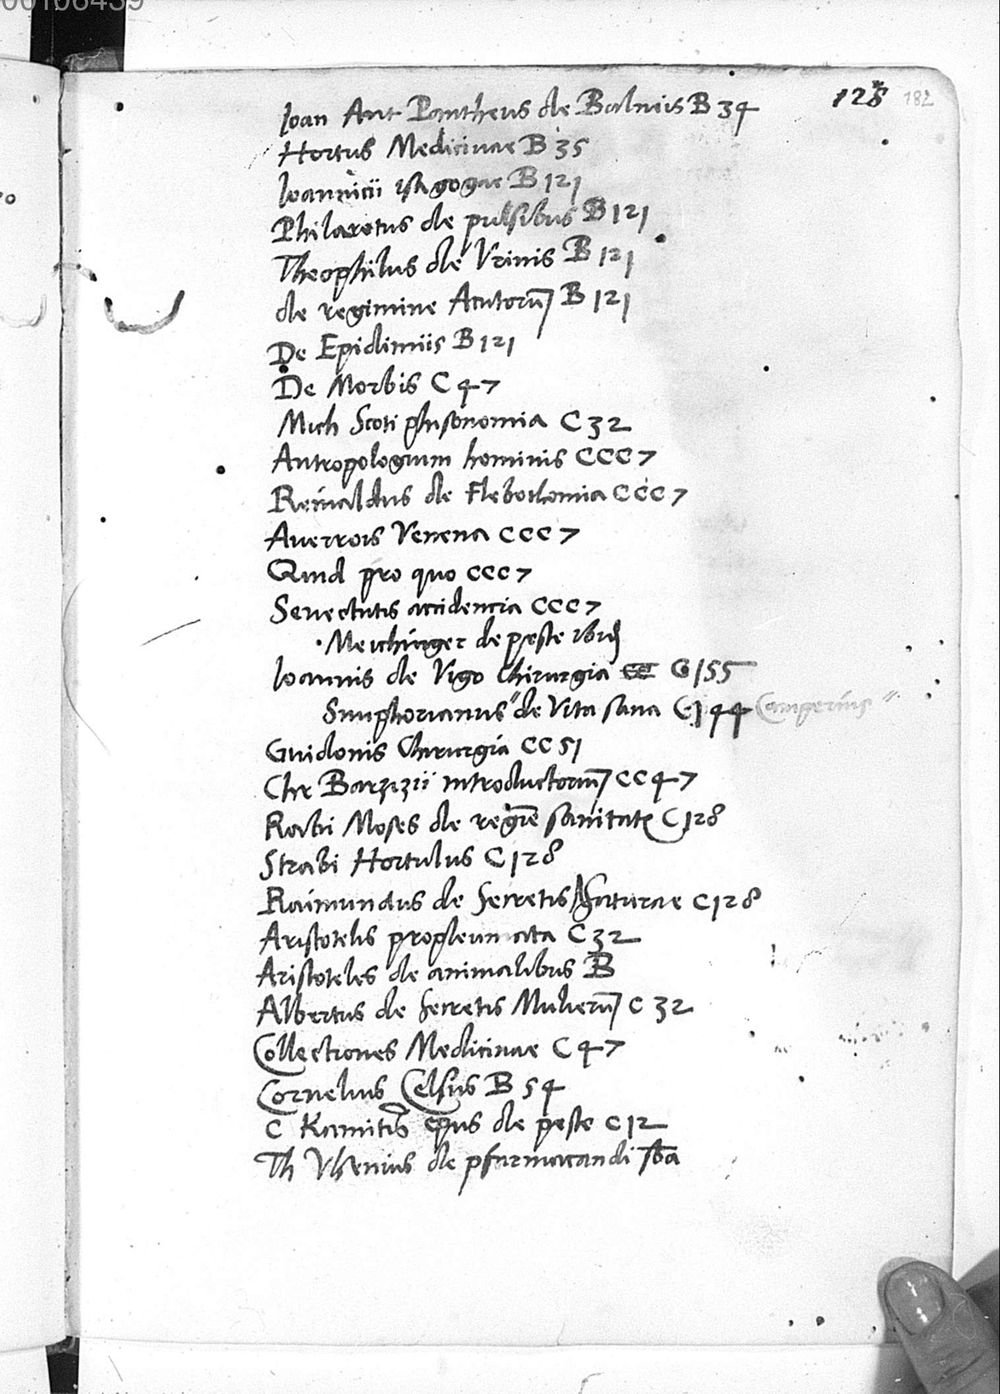 00106439
128 182
Ioan Ant Pantheus de Balneis B 34
Hortus Medicinae B 35
Ioannicii isagogae B 121
Philaretus de pulsibus B 121
Theophilus de Vrinis B 121
de regimine Acutorū B 121
De Epidimiis B 121
De Morbis C 47
Mich Scoti phisonomia C 32
Antropologium hominis CCC 7
Reinaldus de Flebothomia CCC 7
Auerrois Venena CCC 7
Quid pro quo CCC 7
Senectutis accidencia CCC 7
Meichinger de peste ibid
Ioannis de Vigo Chirurgia G 155
Simphorianus "de Vita sana G 144 Camperius"
Guidonis Chirurgia CC 51
Chr Barzizii introductoriū CC 47
Rabi Moses de regīe sanitatis C 128
Strabi Hortulus C 128
Raimundus de Secretis Naturae C 128
Aristotelis propleumata C 32
Aristoteles de animalibus B
Albertus de secretis Mulierū C 32
Collectiones Medicinae C 47
Cornelius Celsus B 54
C Kamitus epus de peste C 12
Th Vlsenius de pharmacandi